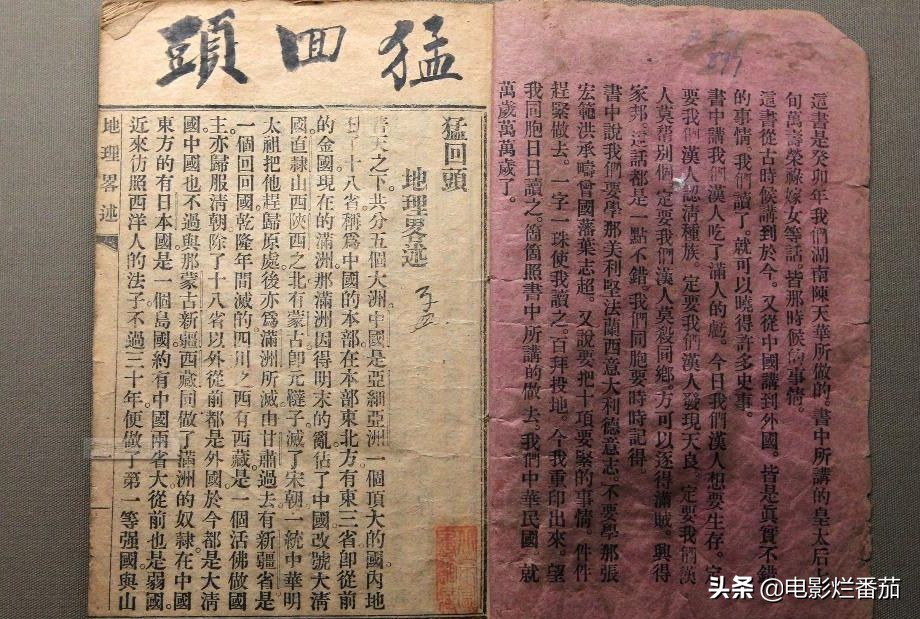 这書是癸卯年我們湖南陳天華所做的。書中所講的皇太后七
旬萬壽榮祿嫁女等話。皆那時候的事情。
這書從古時候講到於今。又從中國講到外國。皆是真實不錯
的事情。我們讀了。就可以曉得許多史事。
書中講我們漢人吃了滿人的虧。今日我們漢人想要生存。定
要我們漢人認清種族。定要我們漢人發現天良。定要我們漢
人莫幫別個。定要我們漢人莫殺同鄉。方可以逐得滿賊。興得
家邦。這話都是一點不錯。我們同胞要時時記得
書中說我們要學那美利堅法蘭西意大利德意志。不要學那張
宏範洪承疇曾國藩葉志超。又說要把十項要緊的事情。件件
趕緊做去。一字一珠使我讀之。百拜投地。今我重印出來。望
我同胞日日讀之。箇箇照書中所講的做去。我們中華民國。就
萬歲萬萬歲了。
猛回頭
猛回頭
地理畧述
天之下。共分五個大洲。中國是亞細亞洲一個頂大的國。內地
十八省。稱爲中國的本部。在本部東北方。有東三省。即從前
的金國。現在的滿洲。那滿洲因得明末的亂。佔了中國。改號大清
國。直隸山西陝西之北。有蒙古。即元韃子。滅了宋朝。一統中華。明
太祖把他趕歸原處。後亦爲滿洲所滅。由甘肅過去。有新疆省。是
一個回回國。乾隆年間滅的。四川之西。有西藏。是一個活佛做國
主。亦歸服清朝。除了十八省以外。從前都是外國。於今都是大清
國。中國也不過與那蒙古新疆西藏同做了滿洲的奴隸。在中國
東方的有日本國。是一個島國。約有中國兩省大。從前也是弱國。
近來仿照西洋人的法子。不過三十年。便做了第一等強國。與山
地理畧述
头条 @电影烂番茄